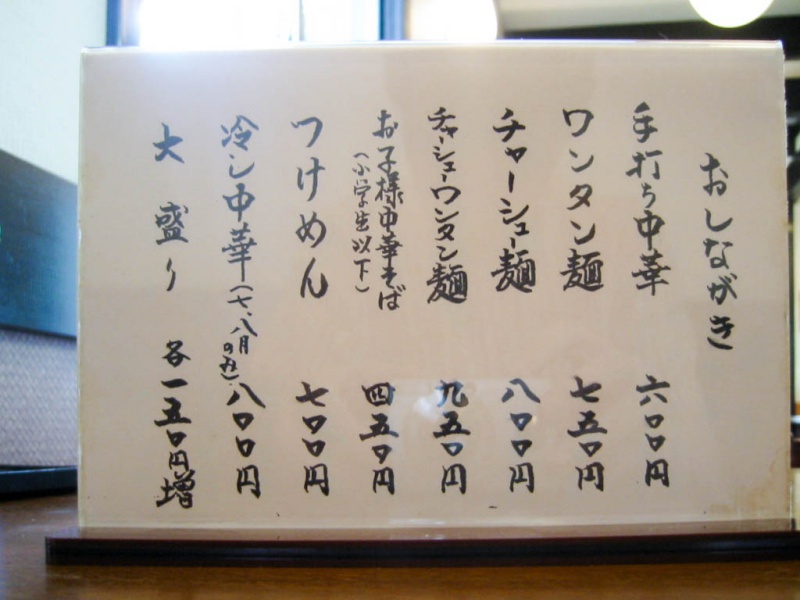 おしながき
手打ち中華 六〇〇円
ワンタン麺 七五〇円
チャーシュー麺 八〇〇円
チャーシューワンタン麺 九五〇円
お子様中華そば 四五〇円
(小学生以下)
つけめん 七〇〇円
冷し中華(七、八月のみ) 八〇〇円
大盛り 各一五〇円増